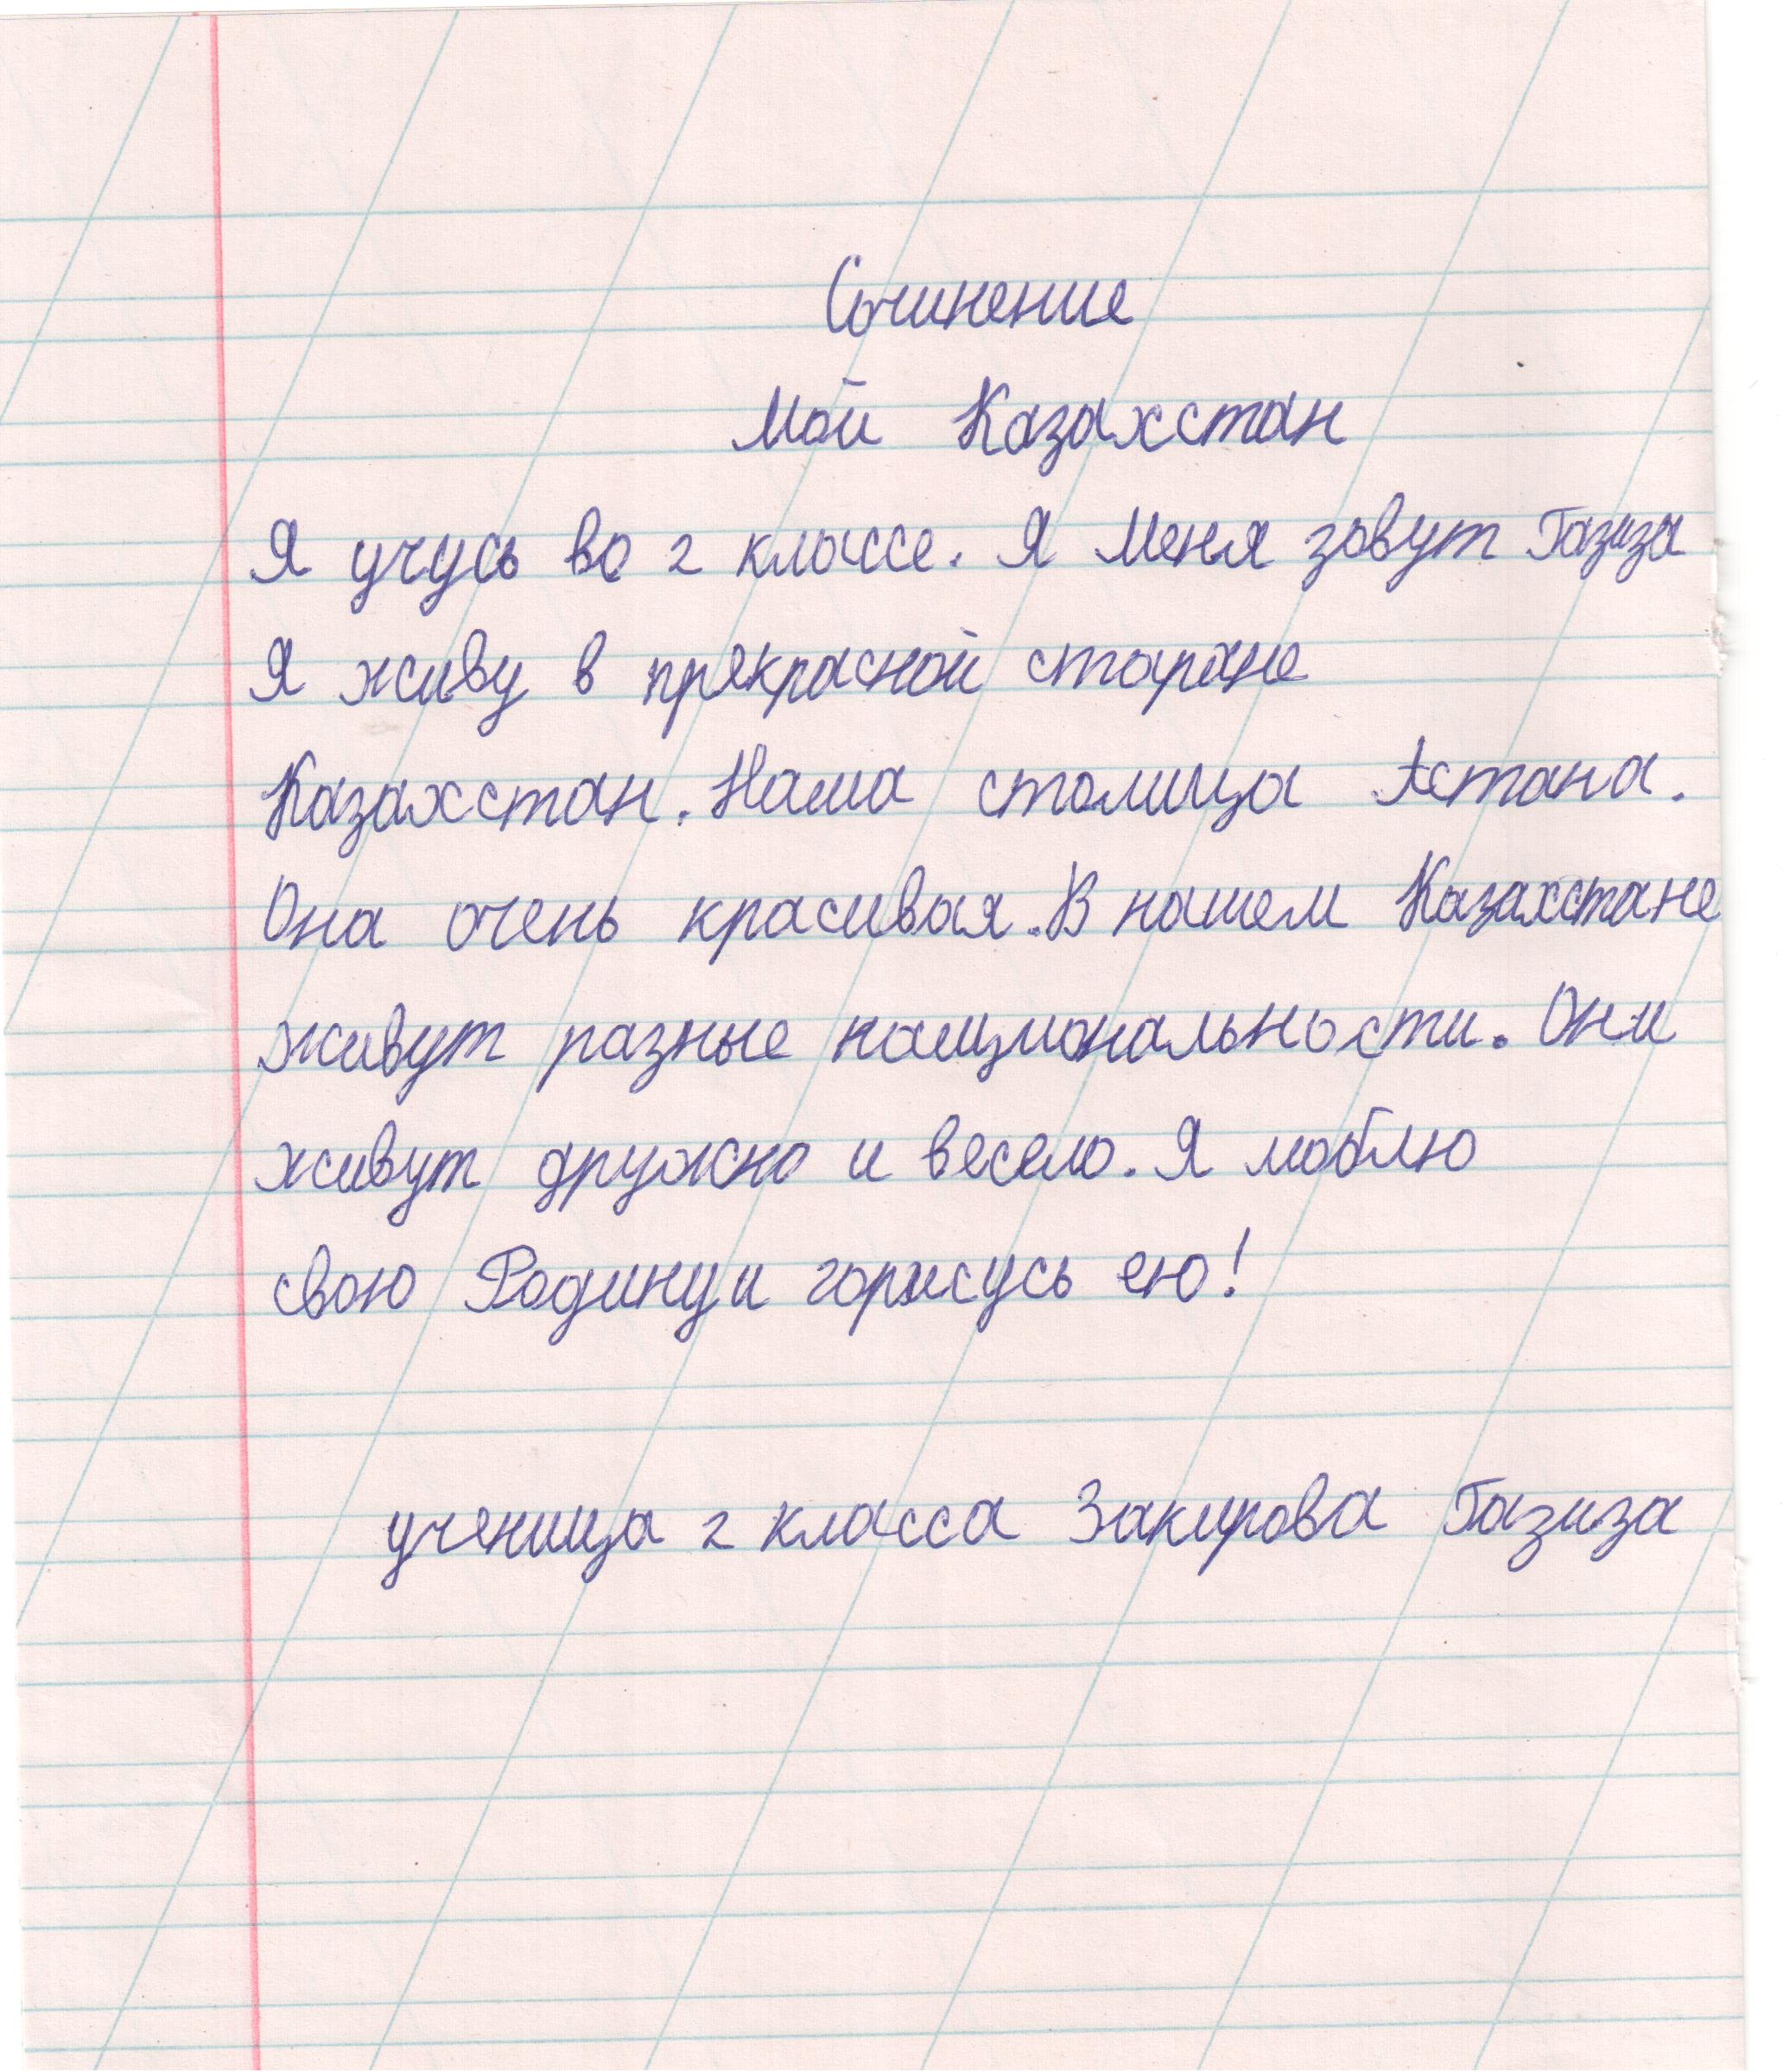 Сочинение
Мой Казахстан
Я учусь во 2 классе. Я Меня зовут Газиза
Я живу в прекрасной старане
Казахстан. Наша столица Астана.
Она очень красивая. В нашем Казахстане
живут разные национальности. Они
живут дружно и весело. Я люблю
свою Родину и горжусь ею!
ученица 2 класса Закирова Газиза